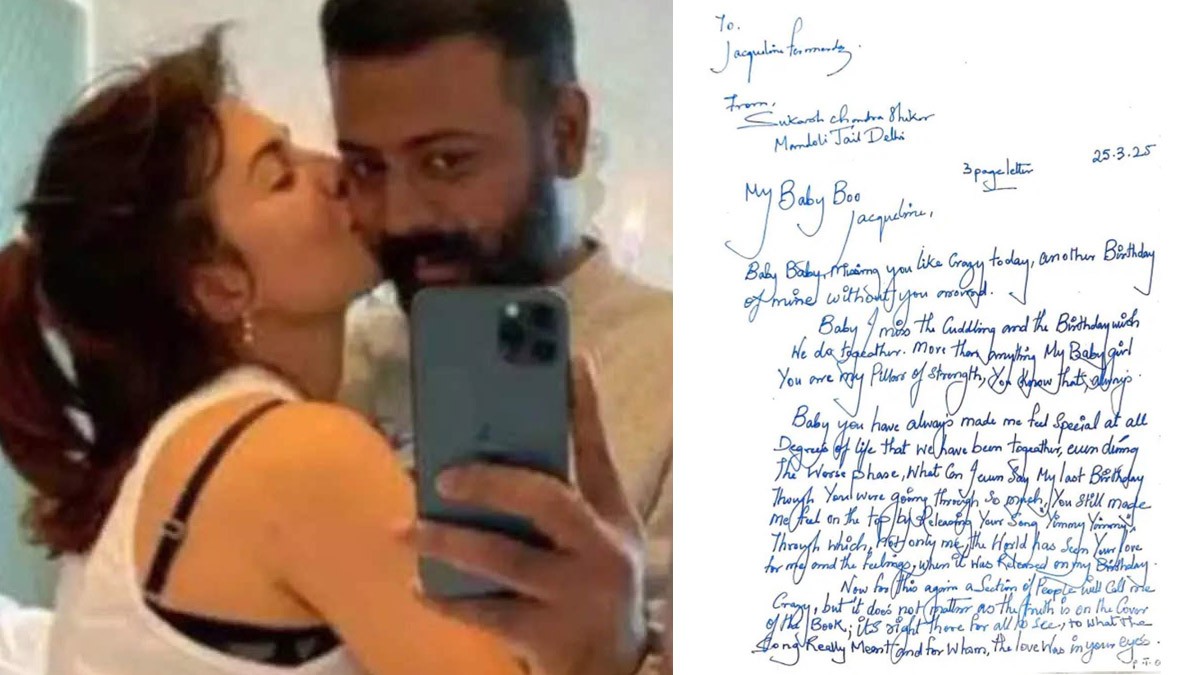 To.
Jacqueline Fernandez.
From,
Sukash Chandra Shikar
Mandoli Jail Delhi
25.3.25
3 page letter
My Baby Boo
Jacqueline,
Baby Baby, missing you like Crazy today, another Birthday
of mine without you around.
Baby I miss the Cuddling and the Birthday wish
We do togeather. More than anything My Baby girl
You are my Pillar of Strength, You Know that, always.
Baby you have always made me feel Special at all
Degrees of life that we have been togeather, even during
The Worse phase, What Can I even Say My last Birthday
Though You were going through So much, You Still made
me feel on the top by Releasing Your Song Yimmy Yimmy,
Through which, Not only me, the World has Seen Your love
for me and the feelings, when it was Released on my Birthday.
Now for this again a Section of People will Call me
Crazy, but it does not matter as the truth is on the Cover
of the Book, its right there for all to see, to what The
Song Really Meant and for Wham, the love Was in your eyes.